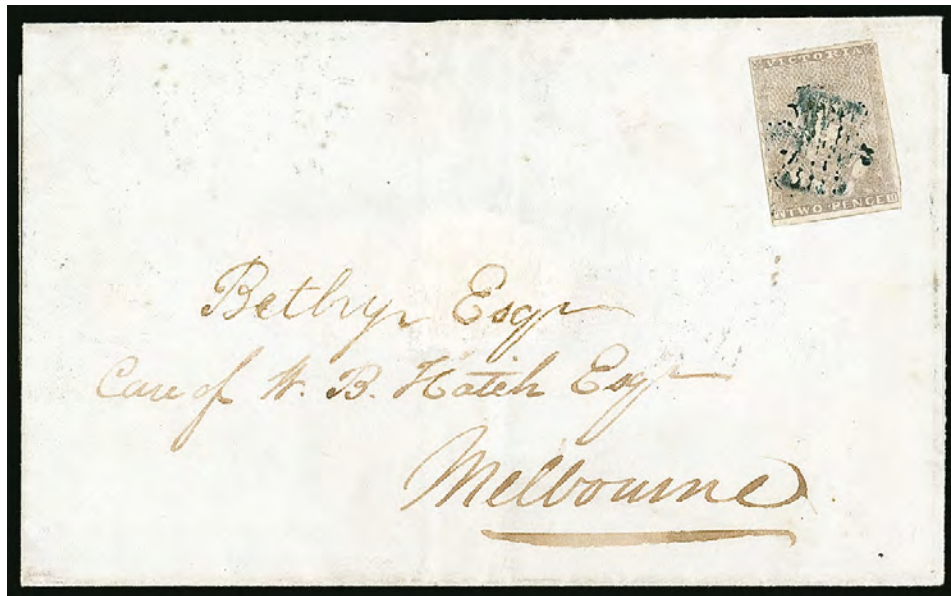 VICTORIA
TWO PENCE
Esqr
Care of W. B. Hatch Esqr
Melbourne